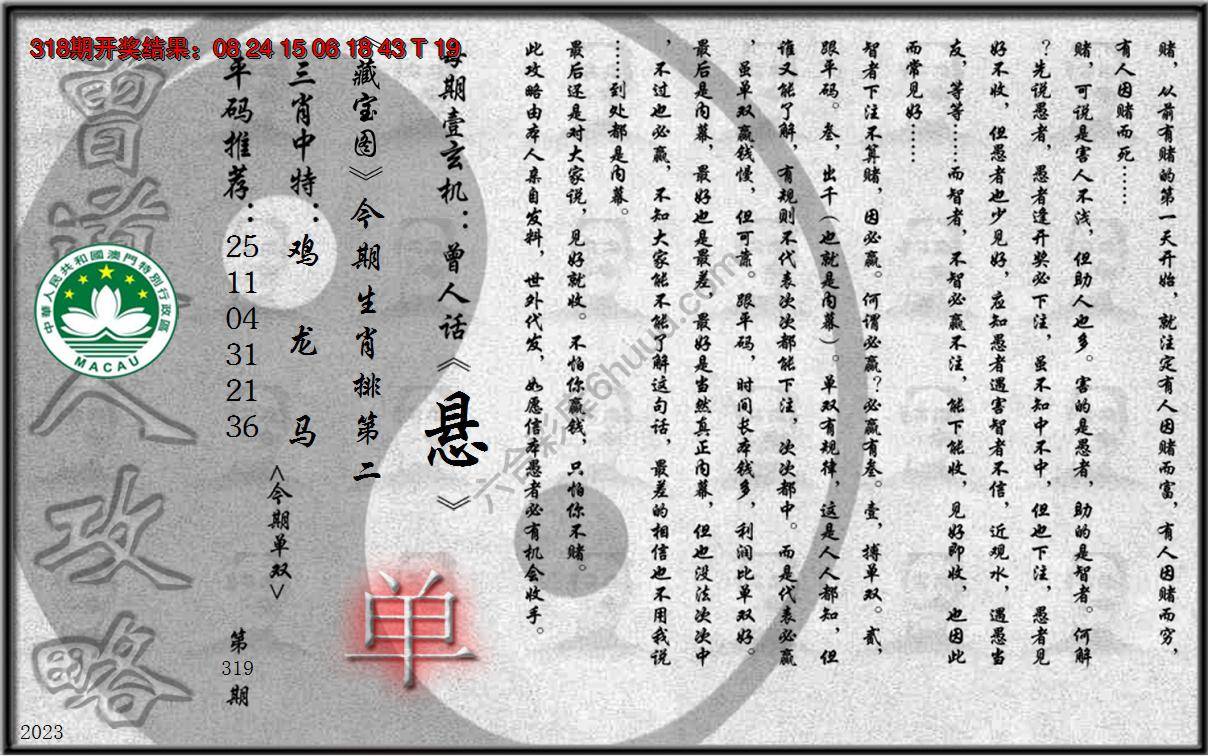 318期开奖结果：08 24 15 06 18 43 T 19
赌，从前有赌的第一天开始，就注定有人因赌而富，有人因赌而穷，
有人因赌而死……
赌，可说是害人不浅，但助人也多。害的是愚者，助的是智者。何解
？先说愚者，愚者逢开奖必下注，虽不知中不中，但也下注，愚者见
好不收，但愚者也少见好，应知愚者遇害智者不信，近观水，遇愚当
友，等等……而智者，不智必赢不注，能下能收，见好即收，也因此
而常见好……
智者下注不算赌，因必赢。何谓必赢？必赢有叁。壹，搏单双。贰，
跟平码。叁，出千（也就是内幕）。单双有规律，这是人人都知，但
谁又能了解，有规则不代表次次都能下注，次次都中。而是代表必赢
，虽单双赢钱慢，但可靠。跟平码，时间长本钱多，利润比单双好。
最后是内幕，最好也是最差，最好是当然真正内幕，但也没法次次中
，不过也必赢，不知大家能不能了解这句话，最差的相信也不用我说
……到处都是内幕。
最后还是对大家说，见好就收。不怕你赢钱，只怕你不赌。
此攻略由本人亲自发料，世外代发，如愿信本愚者必有机会收手。
每期壹玄机：曾人话《悬》
《藏宝图》今期生肖排第二
三肖中特：鸡 龙 马
平码推荐：25 11 04 31 21 36
<今期单双>
单
第319期
曾道人攻略
中華人民共和國澳門特別行政區
MACAU
六合彩库6huuu.com
2023